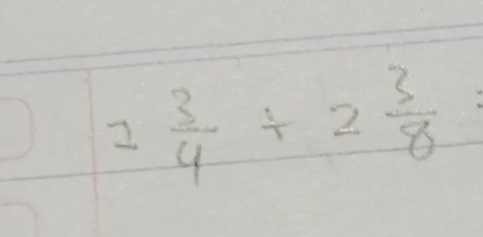 2 3/4 ÷ 2 3/8 =